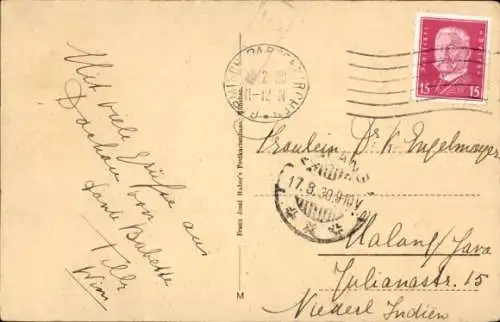 Mit viele Grüße aus
Dachau von
Tante Babette
Willy
Wim
Franz Josef Huber's Postkartenplatte, München
M
GARMISCH-PARTENKIRCHEN
11-12
15 15
17.8.30.9-10V
Fräulein Dr. K Engelmayer
Malang/Java
Julianastr. 15
Niederl Indien